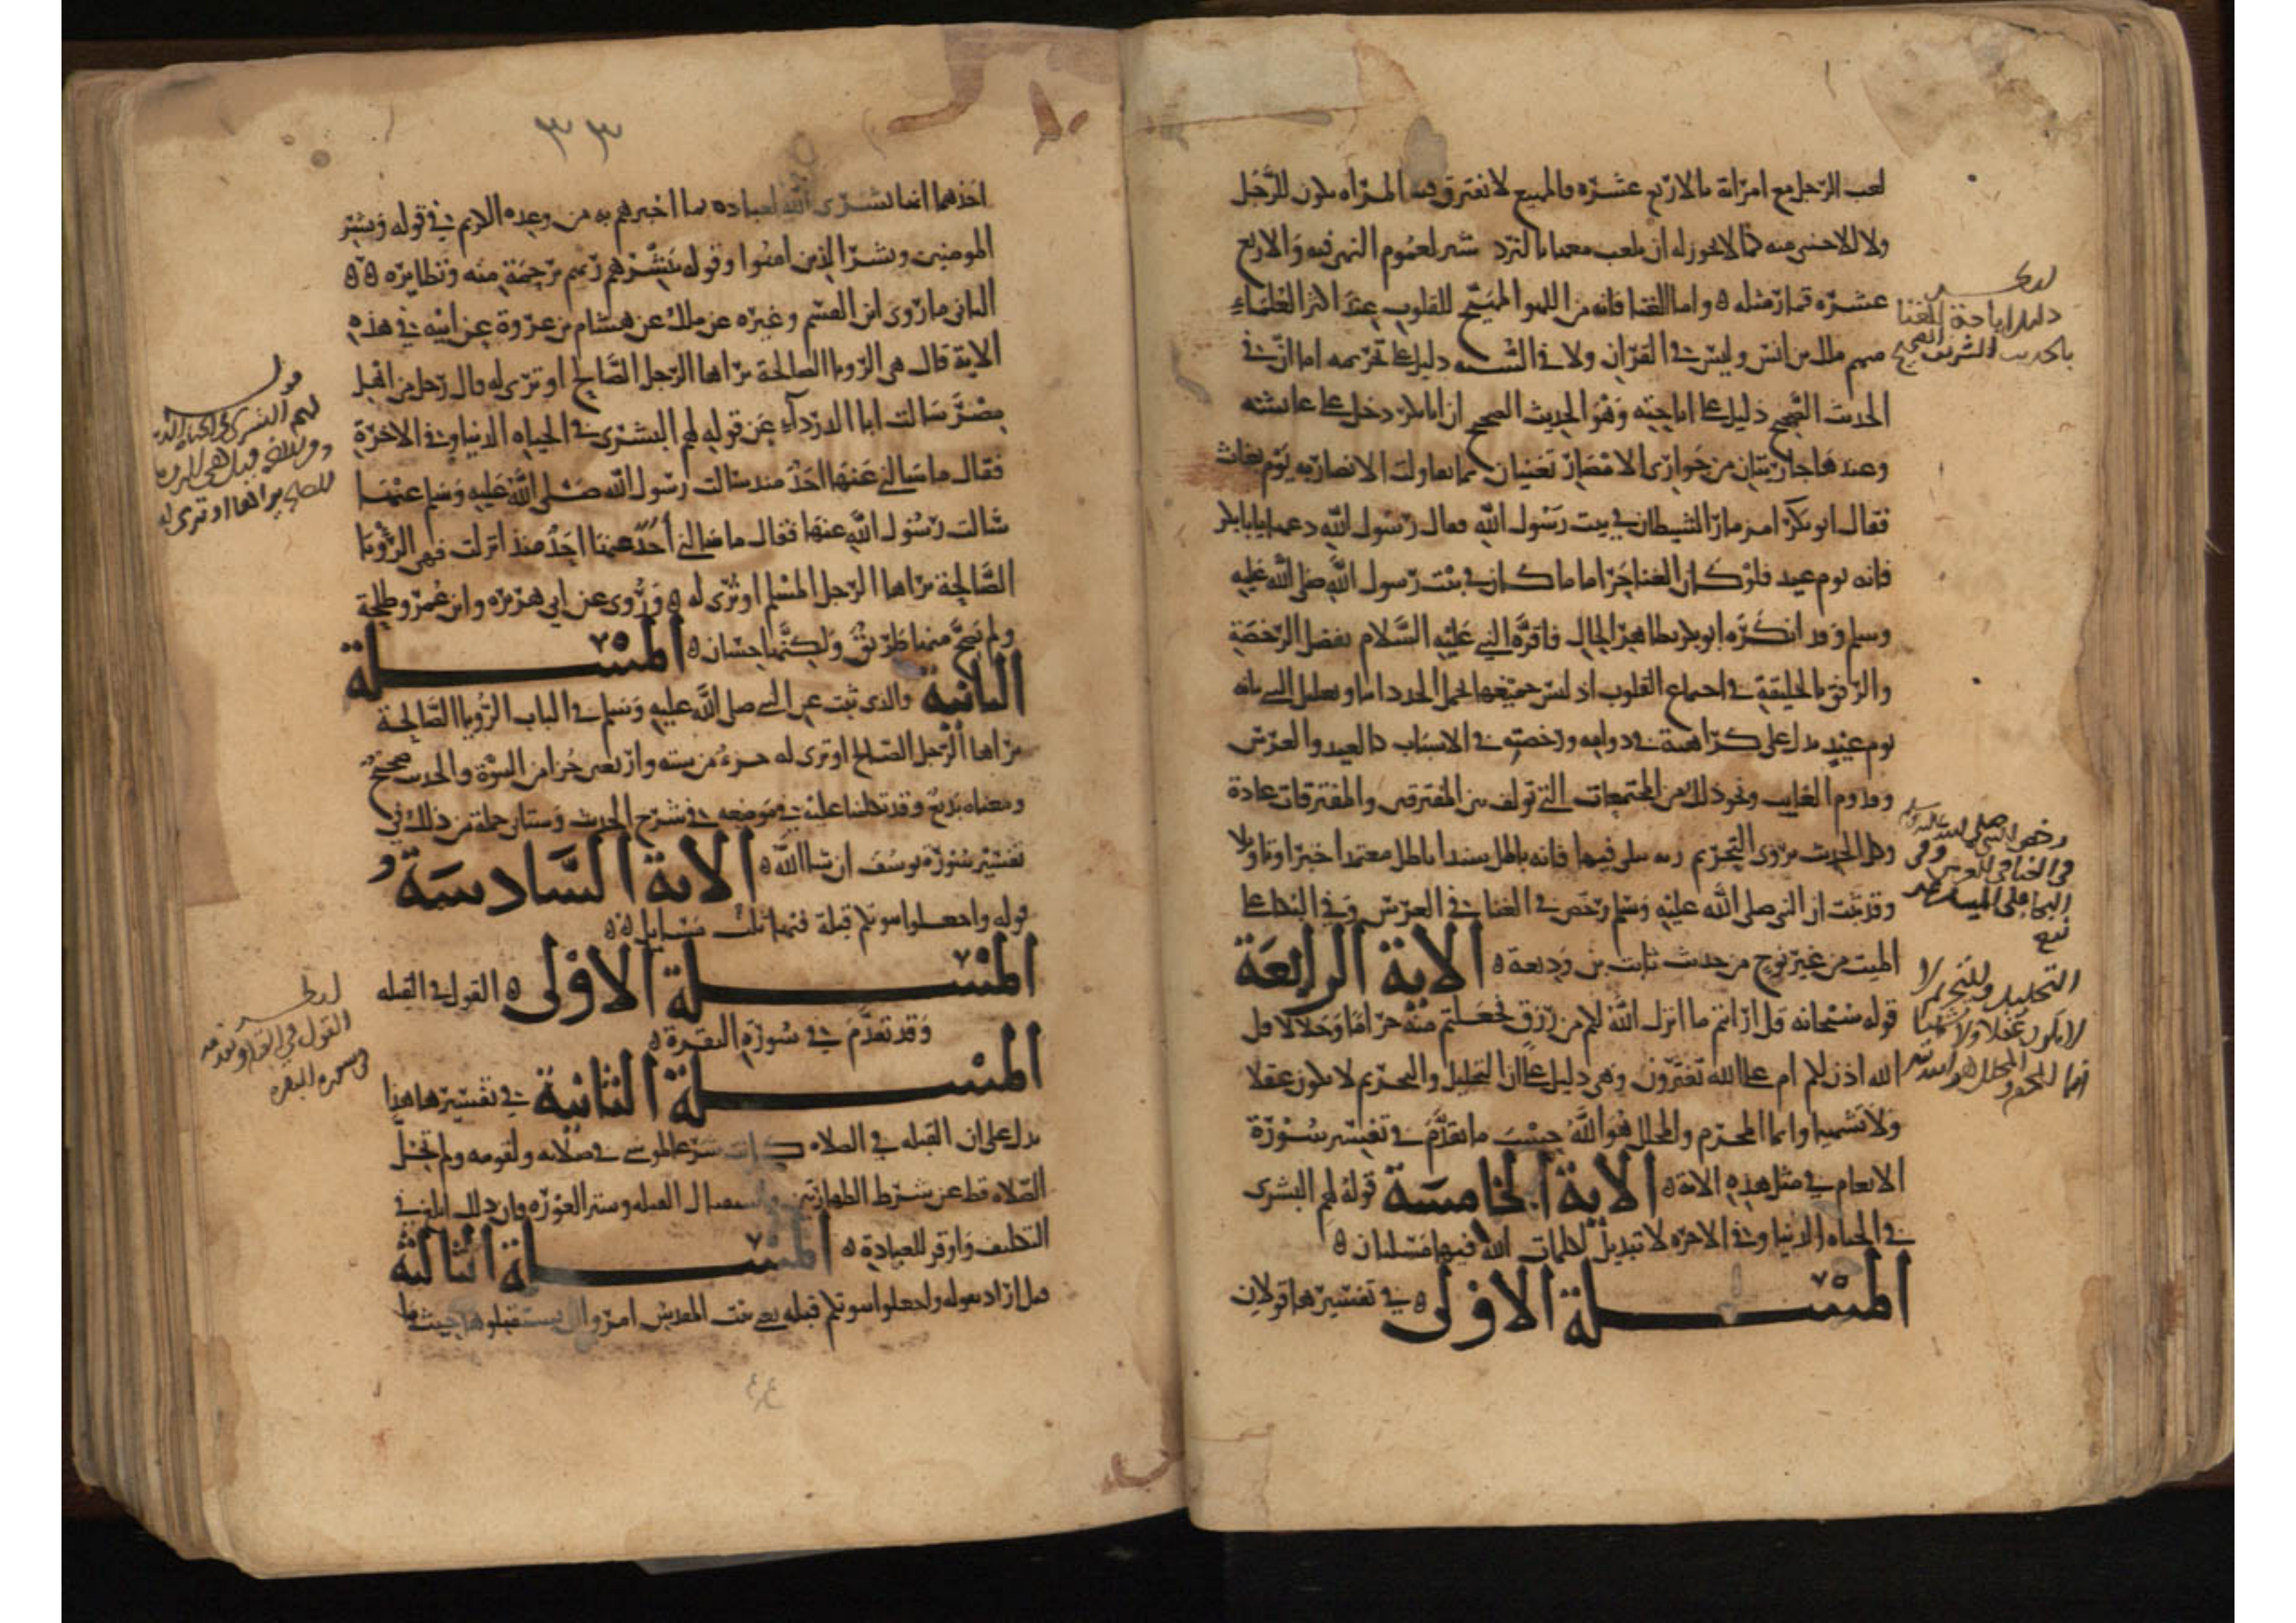 لعب الرجل مع امراته بالاربع عشرة فالمبيع لا نفترق فيه المراه يكون للرجل
ولا للاجنبي منه كما لا يجوز له ان يلعب معها بالنرد شير لعموم النهي فيه والاربع
عشرة قمار مثله ه واما الغنا فانه من اللهو المهيج للقلوب عند اكثر العلماء
منهم ملك بن انس وليس في القران ولا في السنه دليل على تحريمه اما ان في
الحديث الصحيح دليل على اباحته وهو الحديث الصحيح ان ابا بكر دخل على عائشة
وعندها جاريتان من جواري الانصار تغنيان بما تقاولت الانصار به يوم بعاث
فقال ابو بكر امزمار الشيطان في بيت رسول الله فقال رسول الله دعهما يا ابا بكر
فانه يوم عيد فلو كان الغنا حراما ما كان في بيت رسول الله صلى الله عليه
وسلم وقد انكره ابو بكر بظاهر الحال فاقره النبي عليه السلام بفضل الرخصة
والرفق بالخليقة في اجماع القلوب اذ ليس جميعها يحمل الجد دائما وتعليل النبي بانه
يوم عيد يدل على كراهية في دوامه ورخصته في الاسباب كالعيد والعرس
وقدوم الغايب ونحو ذلك من المجتمعات التي تولف بين المفترقين والمفترقات عادة
وكل الحديث يروى التحريم فيها فانه باطل سندا باطل معتمدا خبرا وتاويلا
وقد ثبت ان النبي صلى الله عليه وسلم رخص في الغنا في العرس وفي البكا على
الميت من غير نوح من حديث ثابت بن وديعة ه الاية الرابعة
قوله سبحانه قل ارايتم ما انزل الله لكم من رزق فجعلتم منه حراما وحلالا قل
الله اذن لكم ام على الله تفترون وهي دليل على ان التحليل والتحريم لا يكون عقلا
ولا تشهيا وانما المحرم والمحلل هو الله حسب ما تقدم في تفسير سورة
الانعام في مثل هذه الاية ه الاية الخامسة قوله لهم البشرى
في الحياه الدنيا وفي الاخره لا تبديل لكلمات الله فيها مسلتان ه
المسلة الاولى ه في تفسيرها قولان
دليل اباحة الغنا
بالحديث الشريف الصحيح
رخص النبي صلى الله عليه وسلم
في الغنا في العرس وفي
البكا على الميت من غير
نوح
التحليل والتحريم لا
لا يكون عقلا ولا تشهيا
انما المحرم والمحلل هو الله
٣٣
احدهما انها بشرى الله لعباده بما اخبرهم به من وعده الكريم في قوله وبشر
المومنين وبشر الذين امنوا وقوله يبشرهم ربهم برحمة منه ونظايره ه ه
الثاني ما روى ابن القسم وغيره عن ملك عن هشام بن عروة عن ابيه في هذه
الاية قال هي الرويا الصالحة يراها الرجل الصالح او ترى له قال رجل من اهل
مصر سالت ابا الدرداء عن قوله لهم البشرى في الحياه الدنيا وفي الاخرة
فقال ما سالني عنها احد منذ سالت رسول الله صلى الله عليه وسلم عنها
سالت رسول الله عنها فقال ما سالني احد عنها احد منذ انزلت فهي الرؤيا
الصالحة يراها الرجل المسلم او ترى له ه وروى عن ابي هريره وابن عمر وطلحة
ولم يصح منها طريق ولكنها حسان ه المسلة
الثانية والذي ثبت عن النبي صلى الله عليه وسلم في الباب الرؤيا الصالحة
يراها الرجل الصالح او ترى له جزء من سته واربعين جزا من النبوة والحديث صحيح
ومعناه بديع وقد تكلمنا عليه في موضعه في شرح الحديث وستاتي جملة من ذلك في
تفسير سورة يوسف ان شا الله ه الاية السادسة
قوله واجعلوا بيوتكم قبلة فيها ثلث مسايل ه ه
المسلة الاولى ه القول في القبله
وقد تقدم في سورة البقرة ه
المسلة الثانية في تفسيرها هذا
يدل على ان القبله في الصلاه كانت شرعا لموسى في صلاته ولقومه ولم تخل
الصلاه قط عن شرط الطهارتين واستقبال القبله وستر العورة وان ذلك ابلغ في
التكليف واوقر للعبادة ه المسلة الثالثة
قيل اراد بقوله واجعلوا بيوتكم قبله يعني بيت المقدس امروا ان يستقبلوها حيث ما
قوله
لهم البشرى في الحياة الدنيا
وفي الاخرة قيل هي الرويا
الصالحة يراها او ترى له
القول في القبلة وتقدمه
في سورة البقره
٤٤